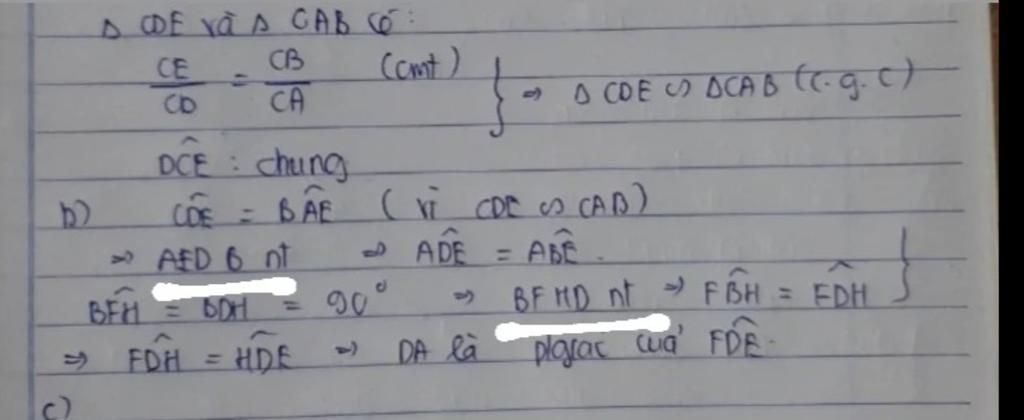 Δ CDE và Δ CAB có:
CE/CD = CB/CA (cmt) } ⇒ Δ CDE ∽ ΔCAB (c.g.c)
DĈE : chung
b) CD̂E = BÂE (vì CDE ∽ CAB)
⇒ AEDB nt ⇒ AD̂E = AB̂E.
BF̂H = BD̂H = 90° ⇒ BFHD nt ⇒ FB̂H = FD̂H }
⇒ FD̂H = HD̂E ⇒ DA là pgiác của FD̂E.
c)